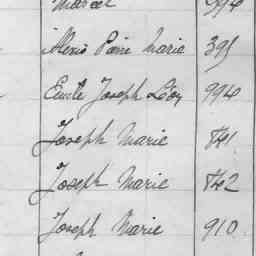 Marcel 994
Alexis Pierre Marie 395
Emile Joseph Léon 994
Joseph Marie 841
Joseph Marie 842
Joseph Marie 910